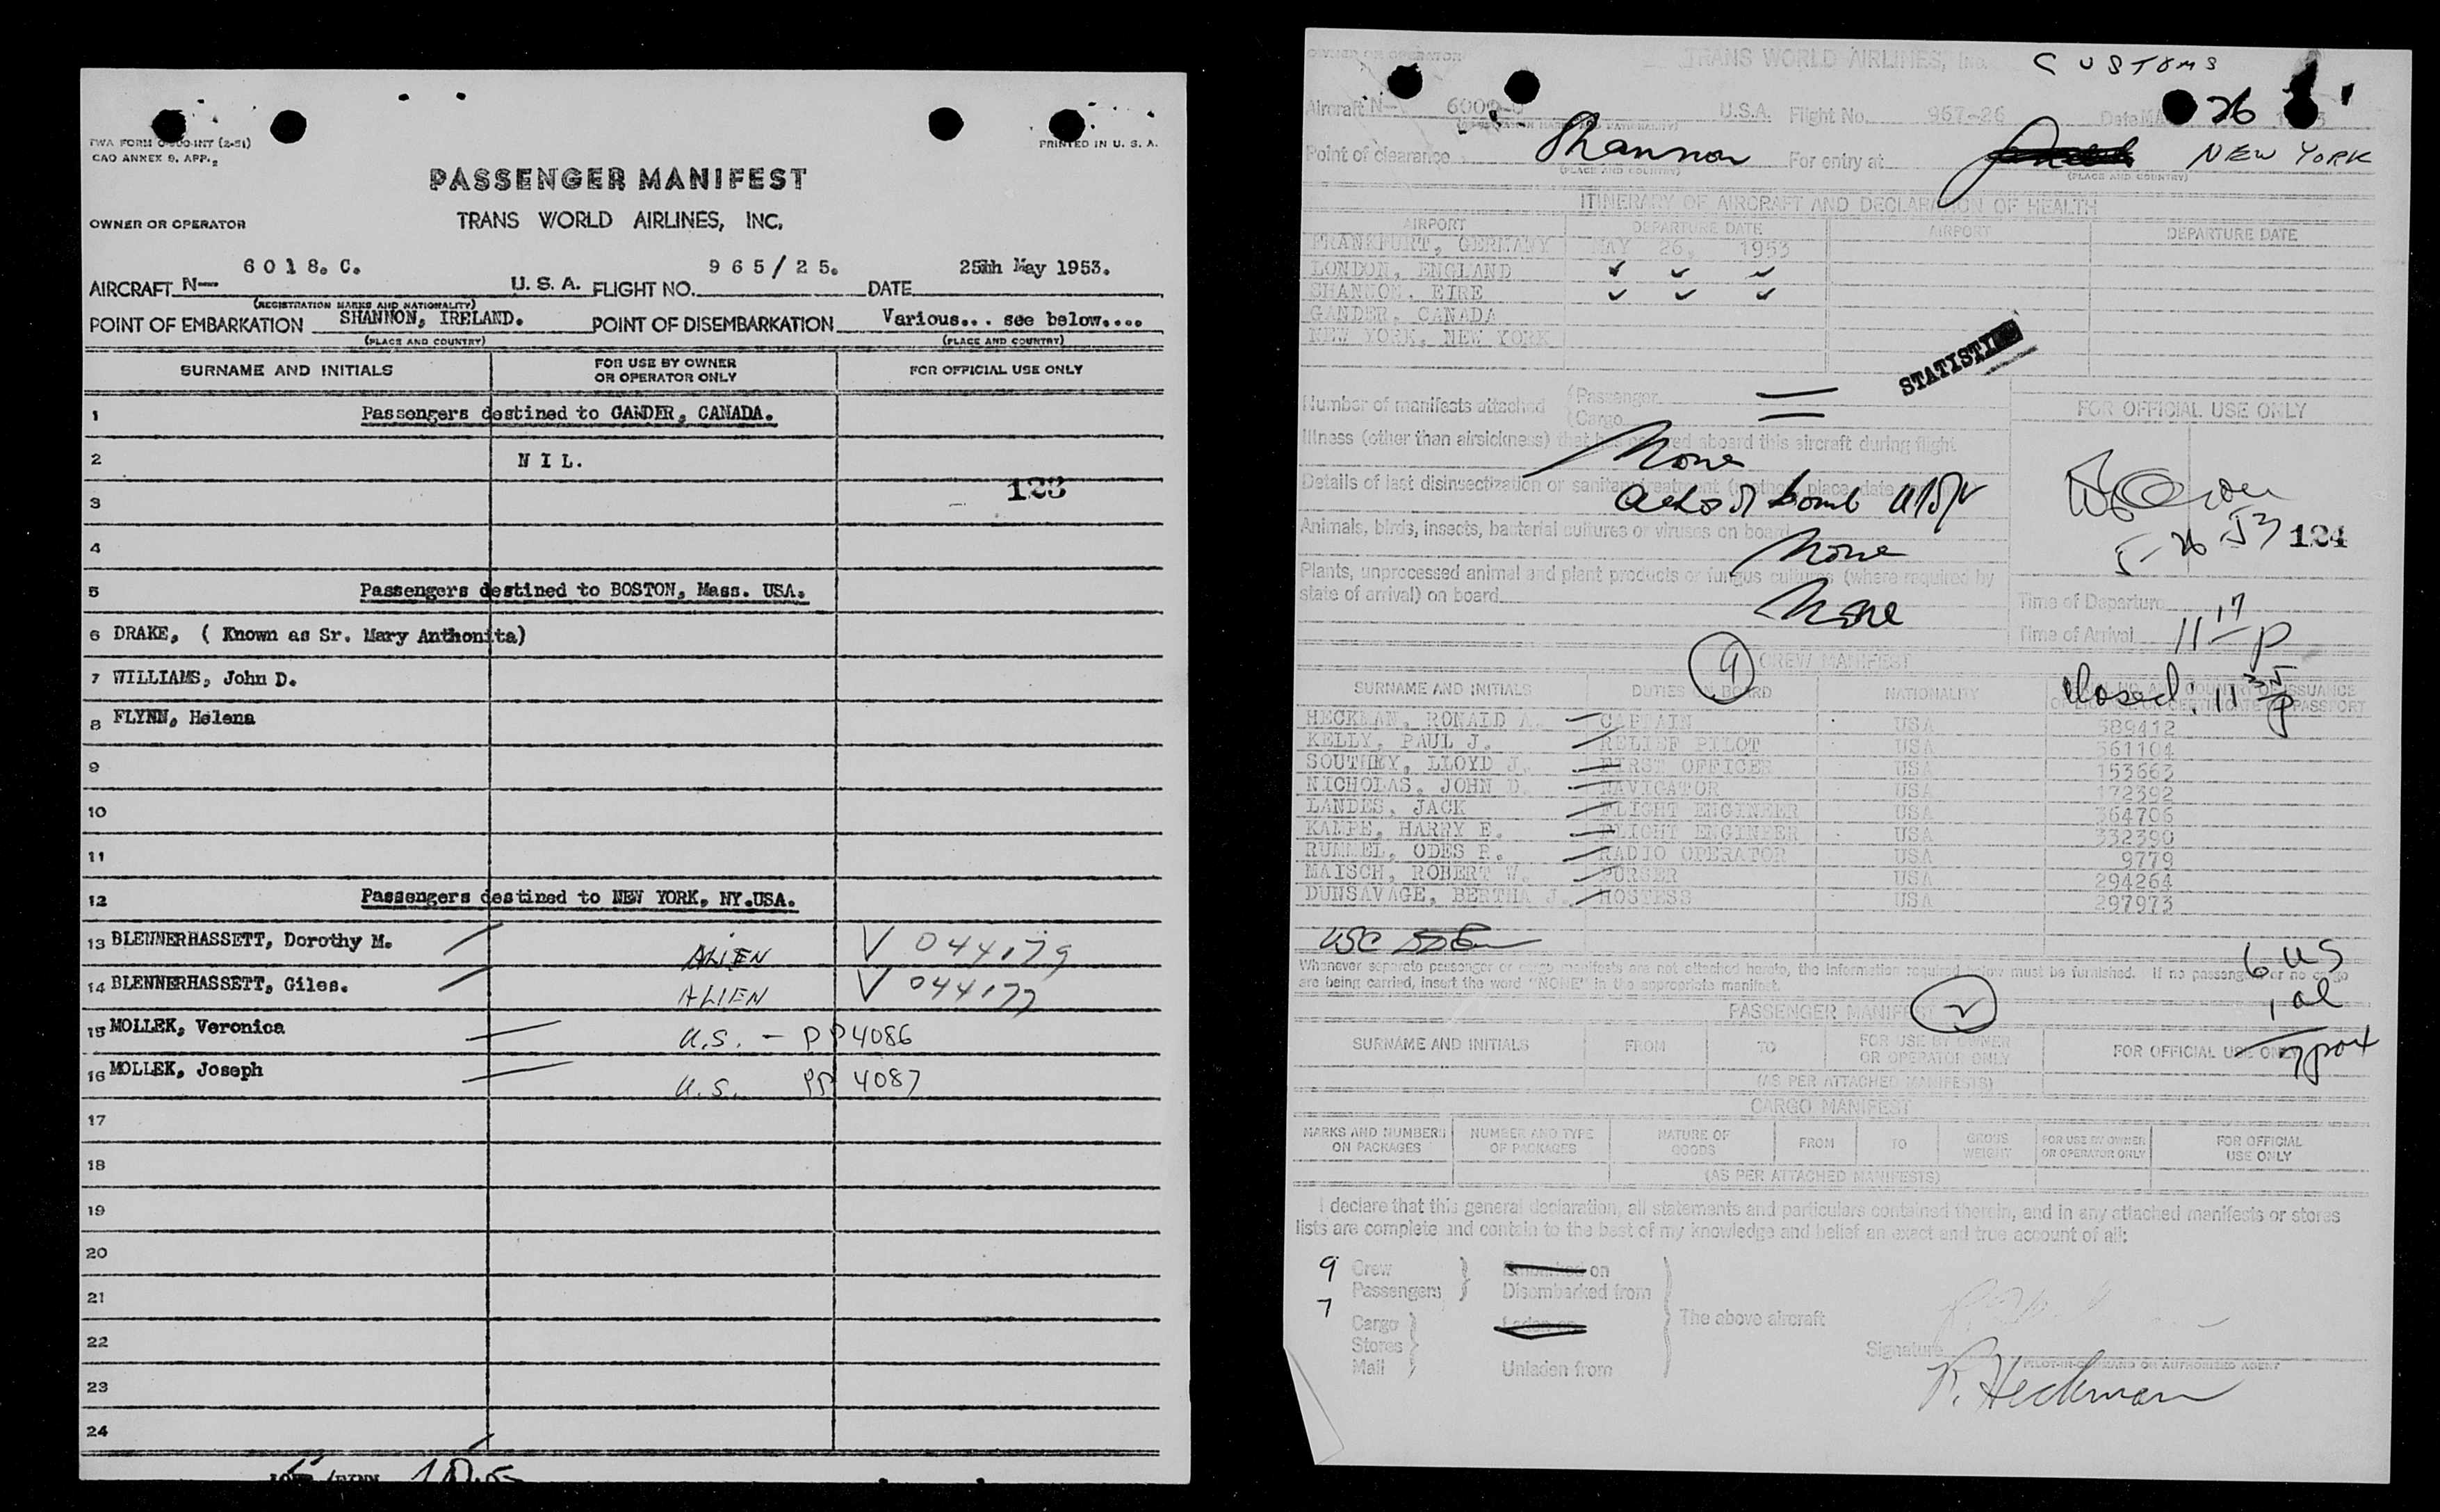 TWA FORM
CAO ANNEX 9, APP. 2
PRINTED IN U. S. A.
PASSENGER MANIFEST
OWNER OR OPERATOR TRANS WORLD AIRLINES, INC.
AIRCRAFT N— 6018.C. U. S. A. FLIGHT NO. 965/25. DATE May 1953.
(REGISTRATION MARKS AND NATIONALITY)
POINT OF EMBARKATION SHANNON, IRELAND. POINT OF DISEMBARKATION Various... see below....
(PLACE AND COUNTRY) (PLACE AND COUNTRY)
SURNAME AND INITIALS FOR USE BY OWNER OR OPERATOR ONLY FOR OFFICIAL USE ONLY
1 Passengers destined to GANDER, CANADA.
2 N I L.
3 123
4
5 Passengers destined to BOSTON, Mass. USA.
6 DRAKE, ( Known as Sr. Mary Anthonita)
7 WILLIAMS, John D.
8 FLYNN, Helena
9
10
11
12 Passengers destined to NEW YORK, NY.USA.
13 BLENNERHASSETT, Dorothy M. ALIEN V 044179
14 BLENNERHASSETT, Giles. ALIEN V 044177
15 MOLLEK, Veronica U.S. - PP 4086
16 MOLLEK, Joseph U.S. PP 4087
17
18
19
20
21
22
23
24
OWNER OR OPERATOR TRANS WORLD AIRLINES, Inc. CUSTOMS
Aircraft N— U.S.A. Flight No. 967-26 Date 26
Point of clearance Shannon For entry at NEW YORK
(PLACE AND COUNTRY) (PLACE AND COUNTRY)
ITINERARY OF AIRCRAFT AND DECLARATION OF HEALTH
AIRPORT DEPARTURE DATE AIRPORT DEPARTURE DATE
FRANKFURT, GERMANY MAY 26, 1953
LONDON, ENGLAND ✓ ✓ ✓
SHANNON, EIRE ✓ ✓ ✓
GANDER, CANADA
NEW YORK, NEW YORK
Number of manifests attached (Passenger
(Cargo
FOR OFFICIAL USE ONLY
Illness (other than airsickness) that has occurred aboard this aircraft during flight
None
Details of last disinsectization or sanitary treatment (method, place, date
bomb
5-26-53 124
Animals, birds, insects, bacterial cultures or viruses on board
None
Plants, unprocessed animal and plant products or fungus cultures (where required by
state of arrival) on board None
Time of Departure
Time of Arrival 11 17 p
9 CREW MANIFEST
closed 11 35 p
SURNAME AND INITIALS DUTIES ON BOARD NATIONALITY
HECKMAN, RONALD A. CAPTAIN USA 389412
KELLY, PAUL J. RELIEF PILOT USA 361104
SOUTHEY, LLOYD J. FIRST OFFICER USA 153663
NICHOLAS, JOHN D. NAVIGATOR USA 172392
LANDES, JACK FLIGHT ENGINEER USA 364706
KAMPE, HARRY E. FLIGHT ENGINEER USA 332390
RUMMEL, ODES R. RADIO OPERATOR USA 9779
MAISCH, ROBERT W. PURSER USA 294264
DUNSAVAGE, BERTHA J. HOSTESS USA 297973
USC
6 US
Whenever separate passenger or cargo manifests are not attached hereto, the information required below must be furnished. If no passengers or no cargo
are being carried, insert the word "NONE" in the appropriate manifest.
1 al
PASSENGER MANIFEST 2
SURNAME AND INITIALS FROM TO FOR USE BY OWNER OR OPERATOR ONLY FOR OFFICIAL USE ONLY
(AS PER ATTACHED MANIFESTS)
CARGO MANIFEST
MARKS AND NUMBERS ON PACKAGES NUMBER AND TYPE OF PACKAGES NATURE OF GOODS FROM TO GROSS WEIGHT FOR USE BY OWNER OR OPERATOR ONLY FOR OFFICIAL USE ONLY
(AS PER ATTACHED MANIFESTS)
I declare that this general declaration, all statements and particulars contained therein, and in any attached manifests or stores
lists are complete and contain to the best of my knowledge and belief an exact and true account of all:
9 Crew Embarked on
7 Passengers Disembarked from
Cargo Laden on The above aircraft
Stores Signature
Mail Unladen from PILOT-IN-COMMAND OR AUTHORIZED AGENT
R. Heckman